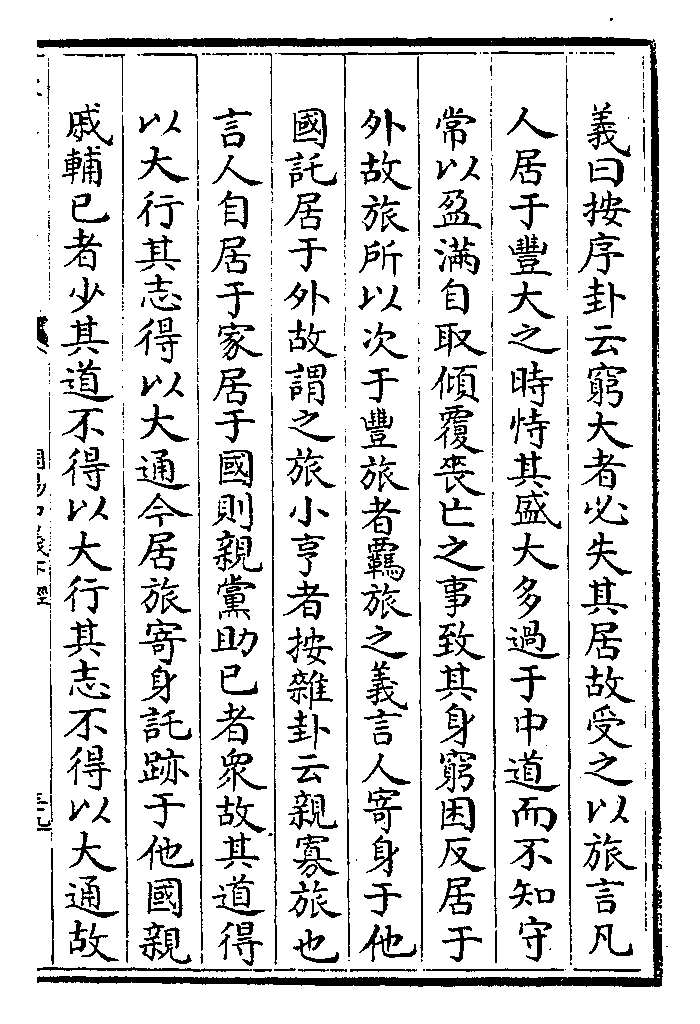 義曰按序卦云窮大者必失其居故受之以旅言凡
人居于豐大之時恃其盛大多過于中道而不知守
常以盈滿自取傾覆喪亡之事致其身窮困反居于
外故旅所以次于豐旅者羈旅之義言人寄身于他
國託居于外故謂之旅小亨者按雜卦云親寡旅也
言人自居于家居于國則親黨助已者衆故其道得
以大行其志得以大通今居旅寄身託跡于他國親
戚輔已者少其道不得以大行其志不得以大通故